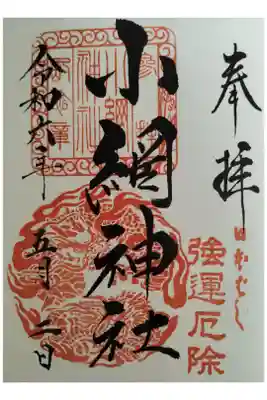 奉拝
日本ばし
強運厄除
小網神社
令和六年 五月 二日